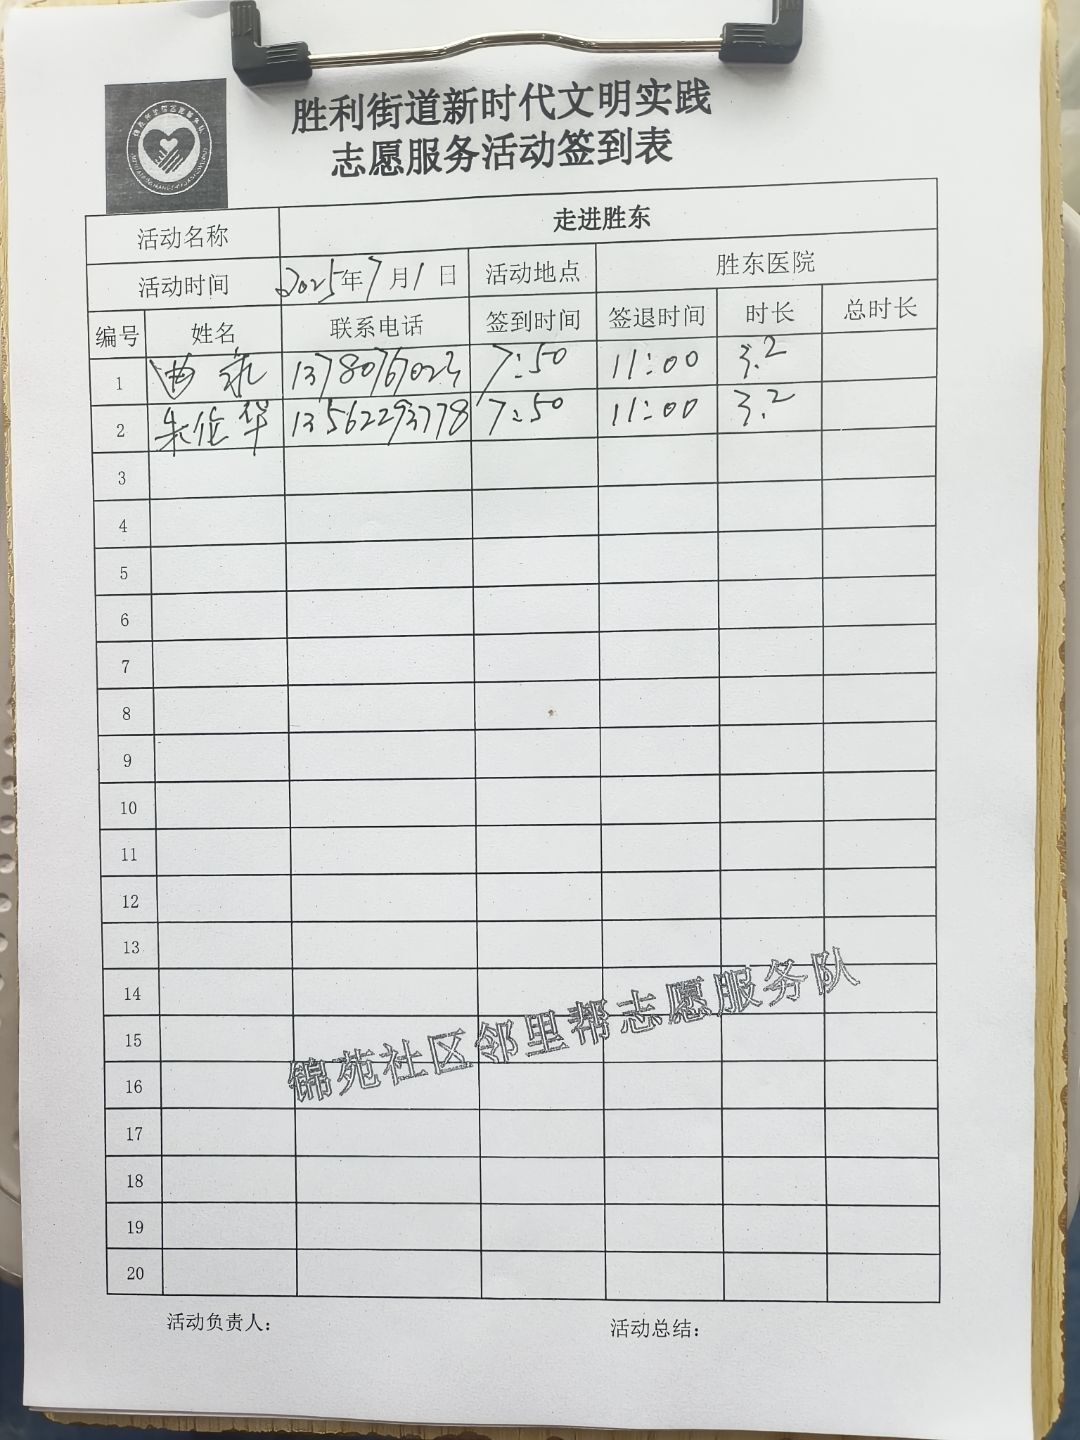 胜利街道新时代文明实践
志愿服务活动签到表
活动名称 走进胜东
活动时间 2025年7月1日 活动地点 胜东医院
编号 姓名 联系电话 签到时间 签退时间 时长 总时长
1 曲 7:50 11:00 3.2
2 朱俭华 13562293778 7:50 11:00 3.2
3
4
5
6
7
8
9
10
11
12
13
14
15
16
17
18
19
20
锦苑社区邻里帮志愿服务队
活动负责人: 活动总结: